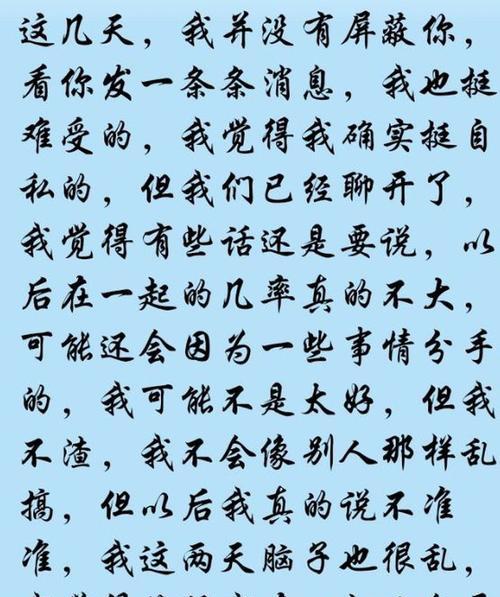 这几天，我并没有屏蔽你，
看你发一条条消息，我也挺
难受的，我觉得我确实挺自
私的，但我们已经聊开了，
我觉得有些话还是要说，以
后在一起的几率真的不大，
可能还会因为一些事情分手
的，我可能不是太好，但我
不渣，我不会像别人那样乱
搞，但以后我真的说不准
准，我这两天脑子也很乱，